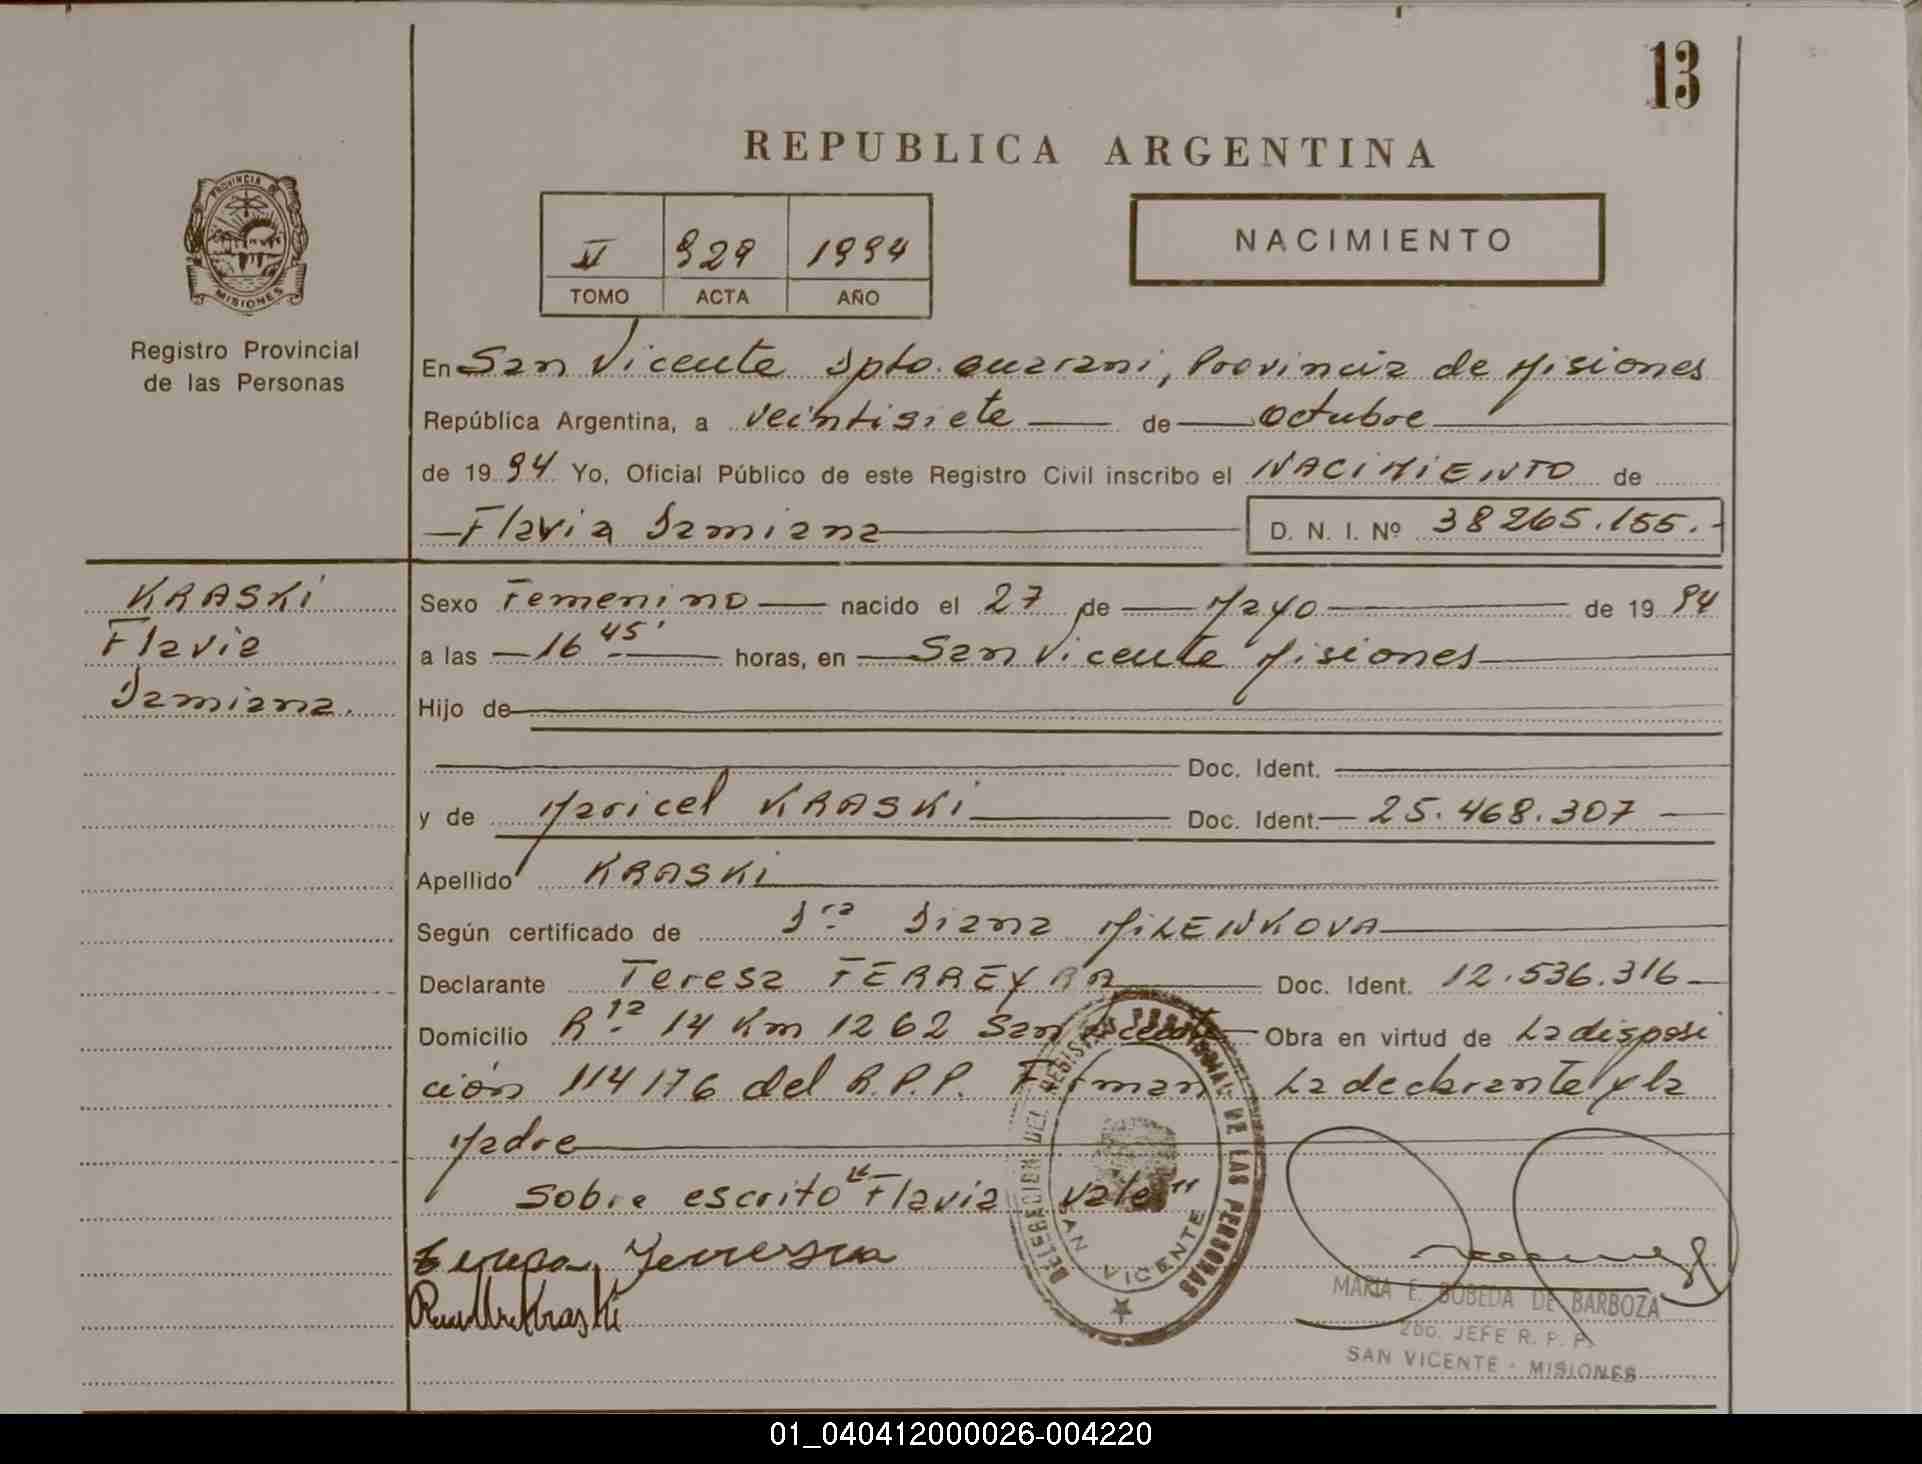 13
REPUBLICA ARGENTINA
PROVINCIA DE
MISIONES
Registro Provincial
de las Personas
929 1994
TOMO ACTA AÑO
NACIMIENTO
En San Vicente Dpto. Guarani, Provincia de Misiones
República Argentina, a veintisiete de Octubre
de 1994 Yo, Oficial Público de este Registro Civil inscribo el NACIMIENTO de
Flavia Damiana D. N. I. Nº 38265.155.-
KRASKi
Flavia
Damiana.
Sexo Femenino nacido el 27 de Mayo de 1994
a las 16 45' horas, en San Vicente Misiones
Hijo de
Doc. Ident.
y de Maricel KRASKi Doc. Ident. 25.468.307
Apellido KRASKi
Según certificado de Dra Diana MiLENKOVA
Declarante Teresa FERREYRA Doc. Ident. 12.536.316
Domicilio Rta 14 Km 1262 San Vicente Obra en virtud de La disposi
ción 114176 del R.P.P. Firman La declarante y la
Madre
Sobre escrito "Flavia vale"
DELEGACION DEL REGISTRO PROVINCIAL DE LAS PERSONAS
SAN VICENTE
Teresa Ferreyra
Kraski
MARIA E. BOBEDA DE BARBOZA
2do. JEFE R. P. P.
SAN VICENTE - MISIONES
01_040412000026-004220